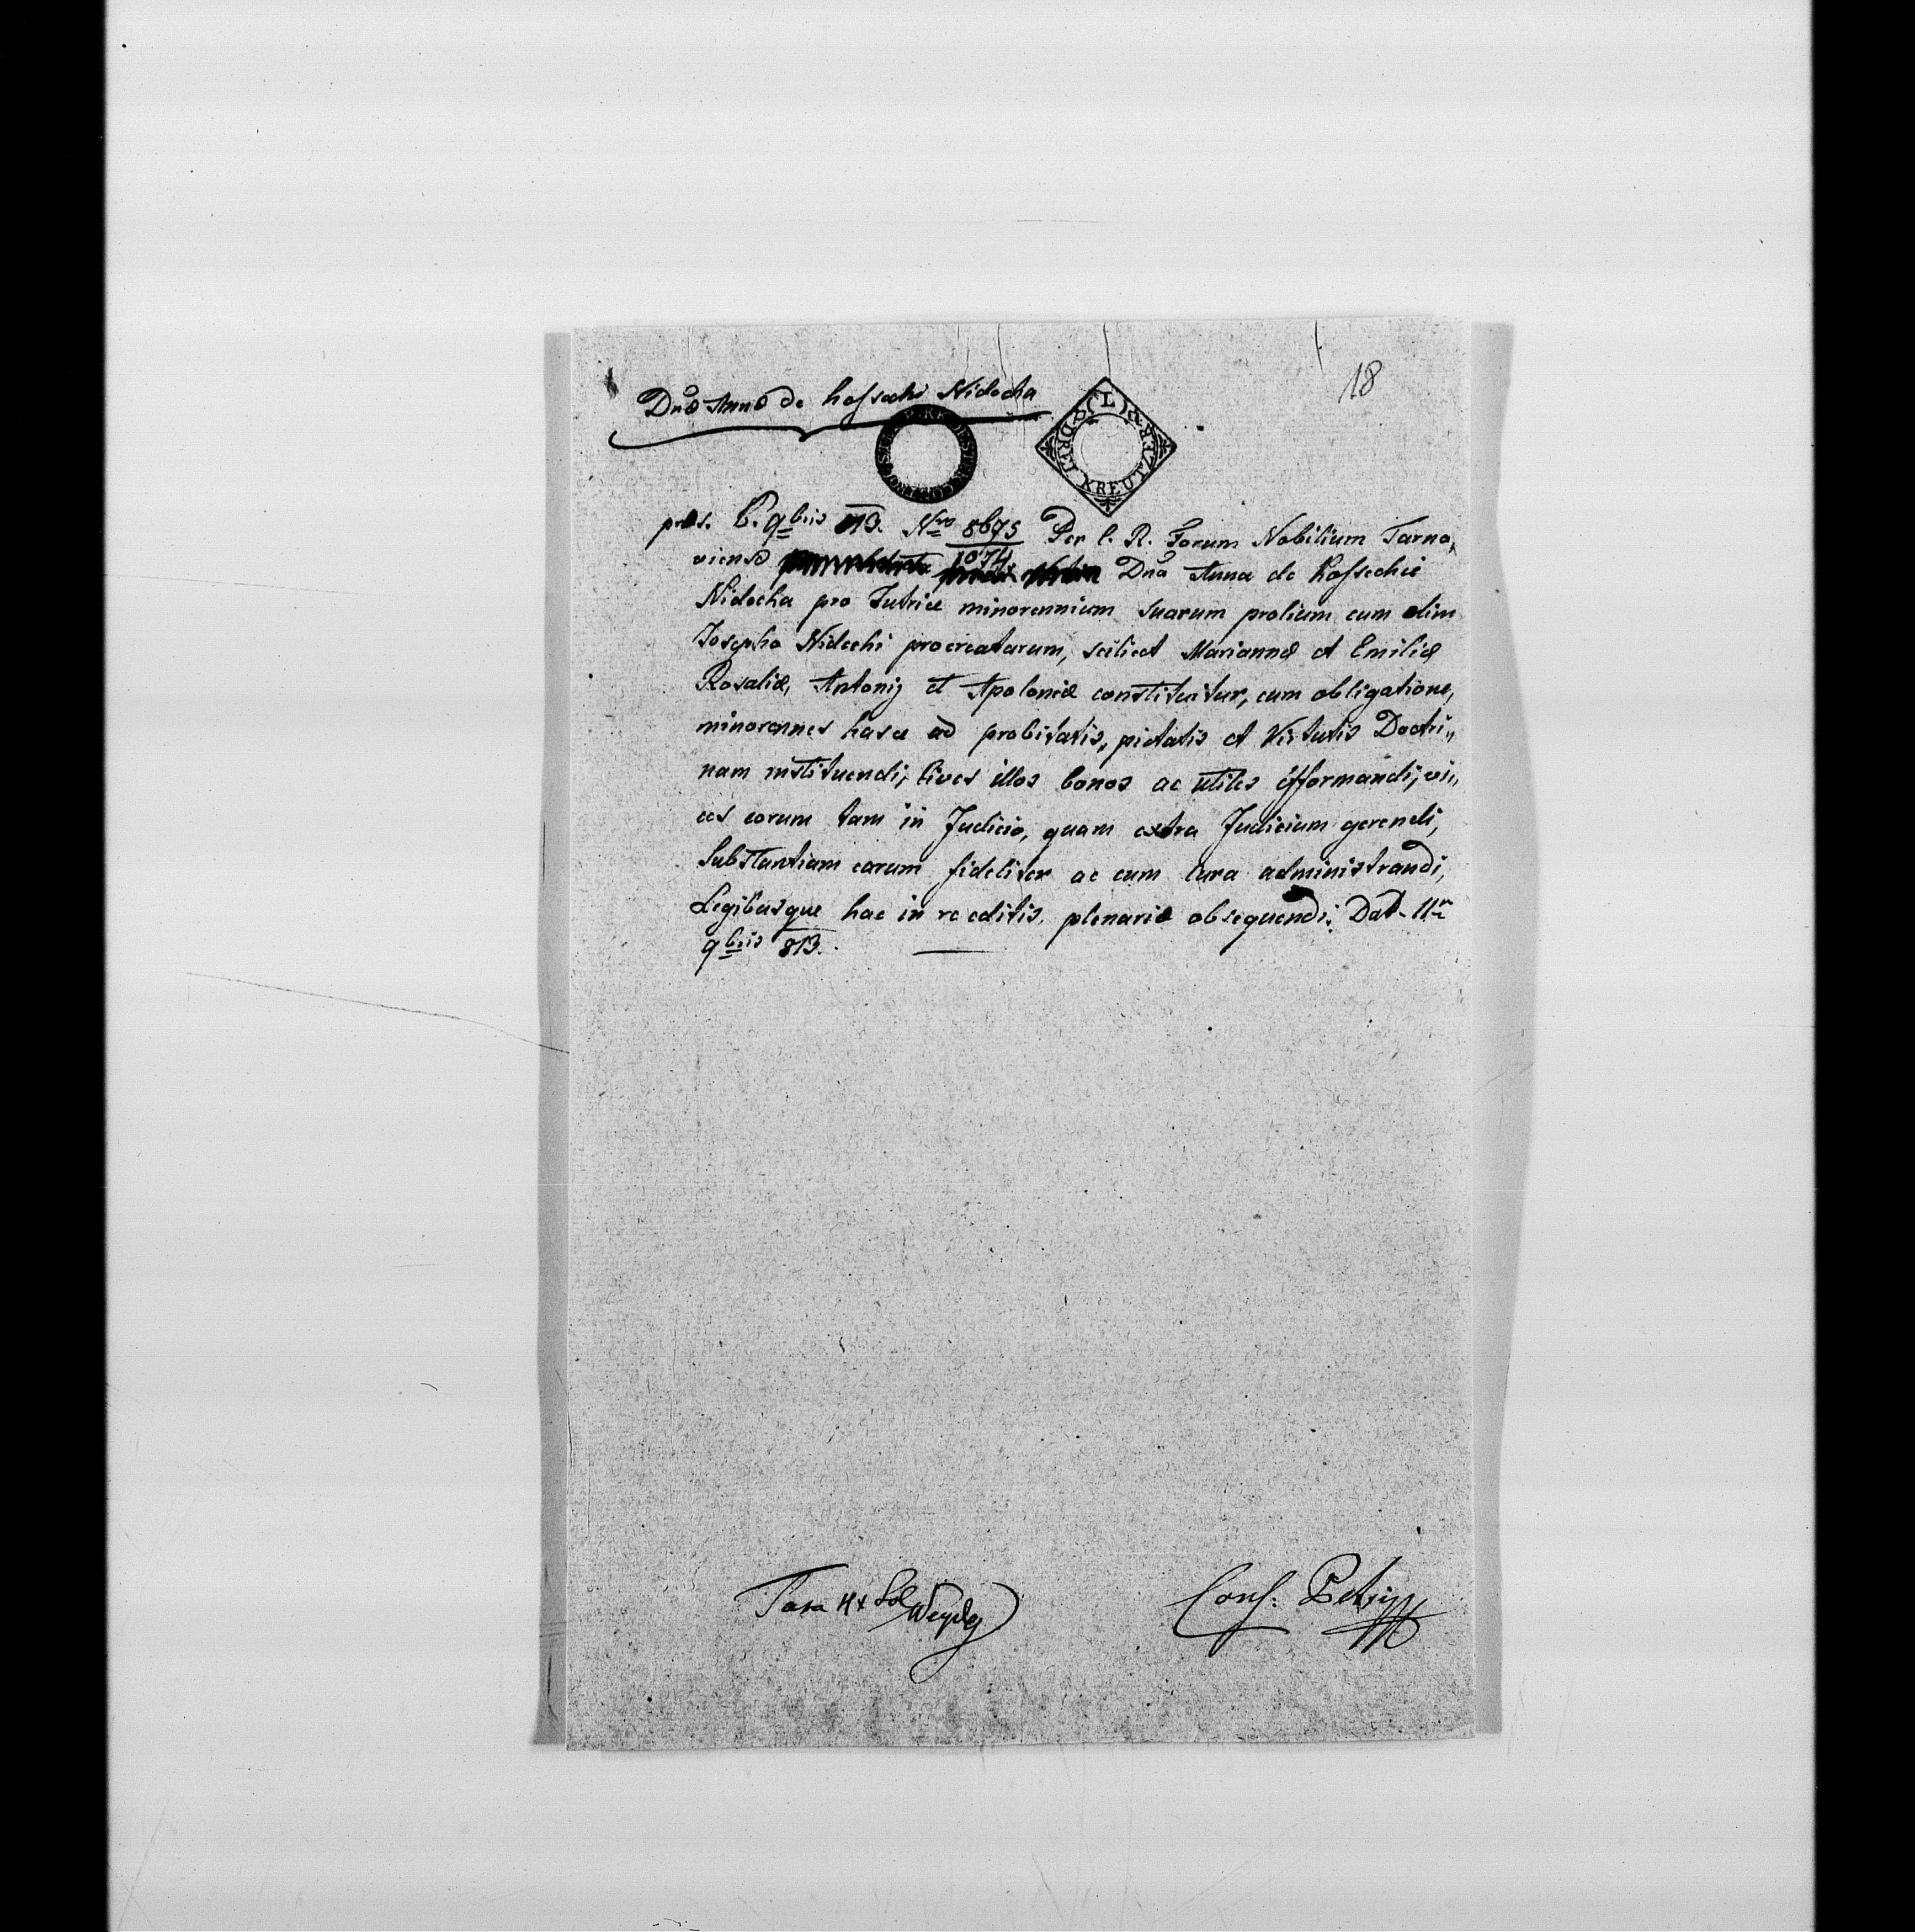 18
Dnæ Annæ de Kossecki Nidecka
DREY KREUTZER
præs. 6. 9bris 813. Nro 8675 Per C. R. Forum Nobilium Tarno„
1074
viense Dna Anna de Kosseckie
Nidecka pro Tutrice minorennium suarum prolium cum olim
Josepho Nidecki procreatarum, scilicet Mariannæ et Emiliæ
Rosaliæ, Antonij et Apoloniæ constituitur, cum obligatione,
minorennes hasce ad probitatis, pietatis et Virtutis Doctri„
nam instituendi, Cives illos bonos ac utiles efformandi, vi„
ces eorum tam in Judicio, quam extra Judicium gerendi,
Substantiam earum fideliter ac cum Cura administrandi,
Legibusque hac in re editis plenarie obsequendi. Dat. 11a
9bris 813.
Taxa 4x Sol
Cons: Petri